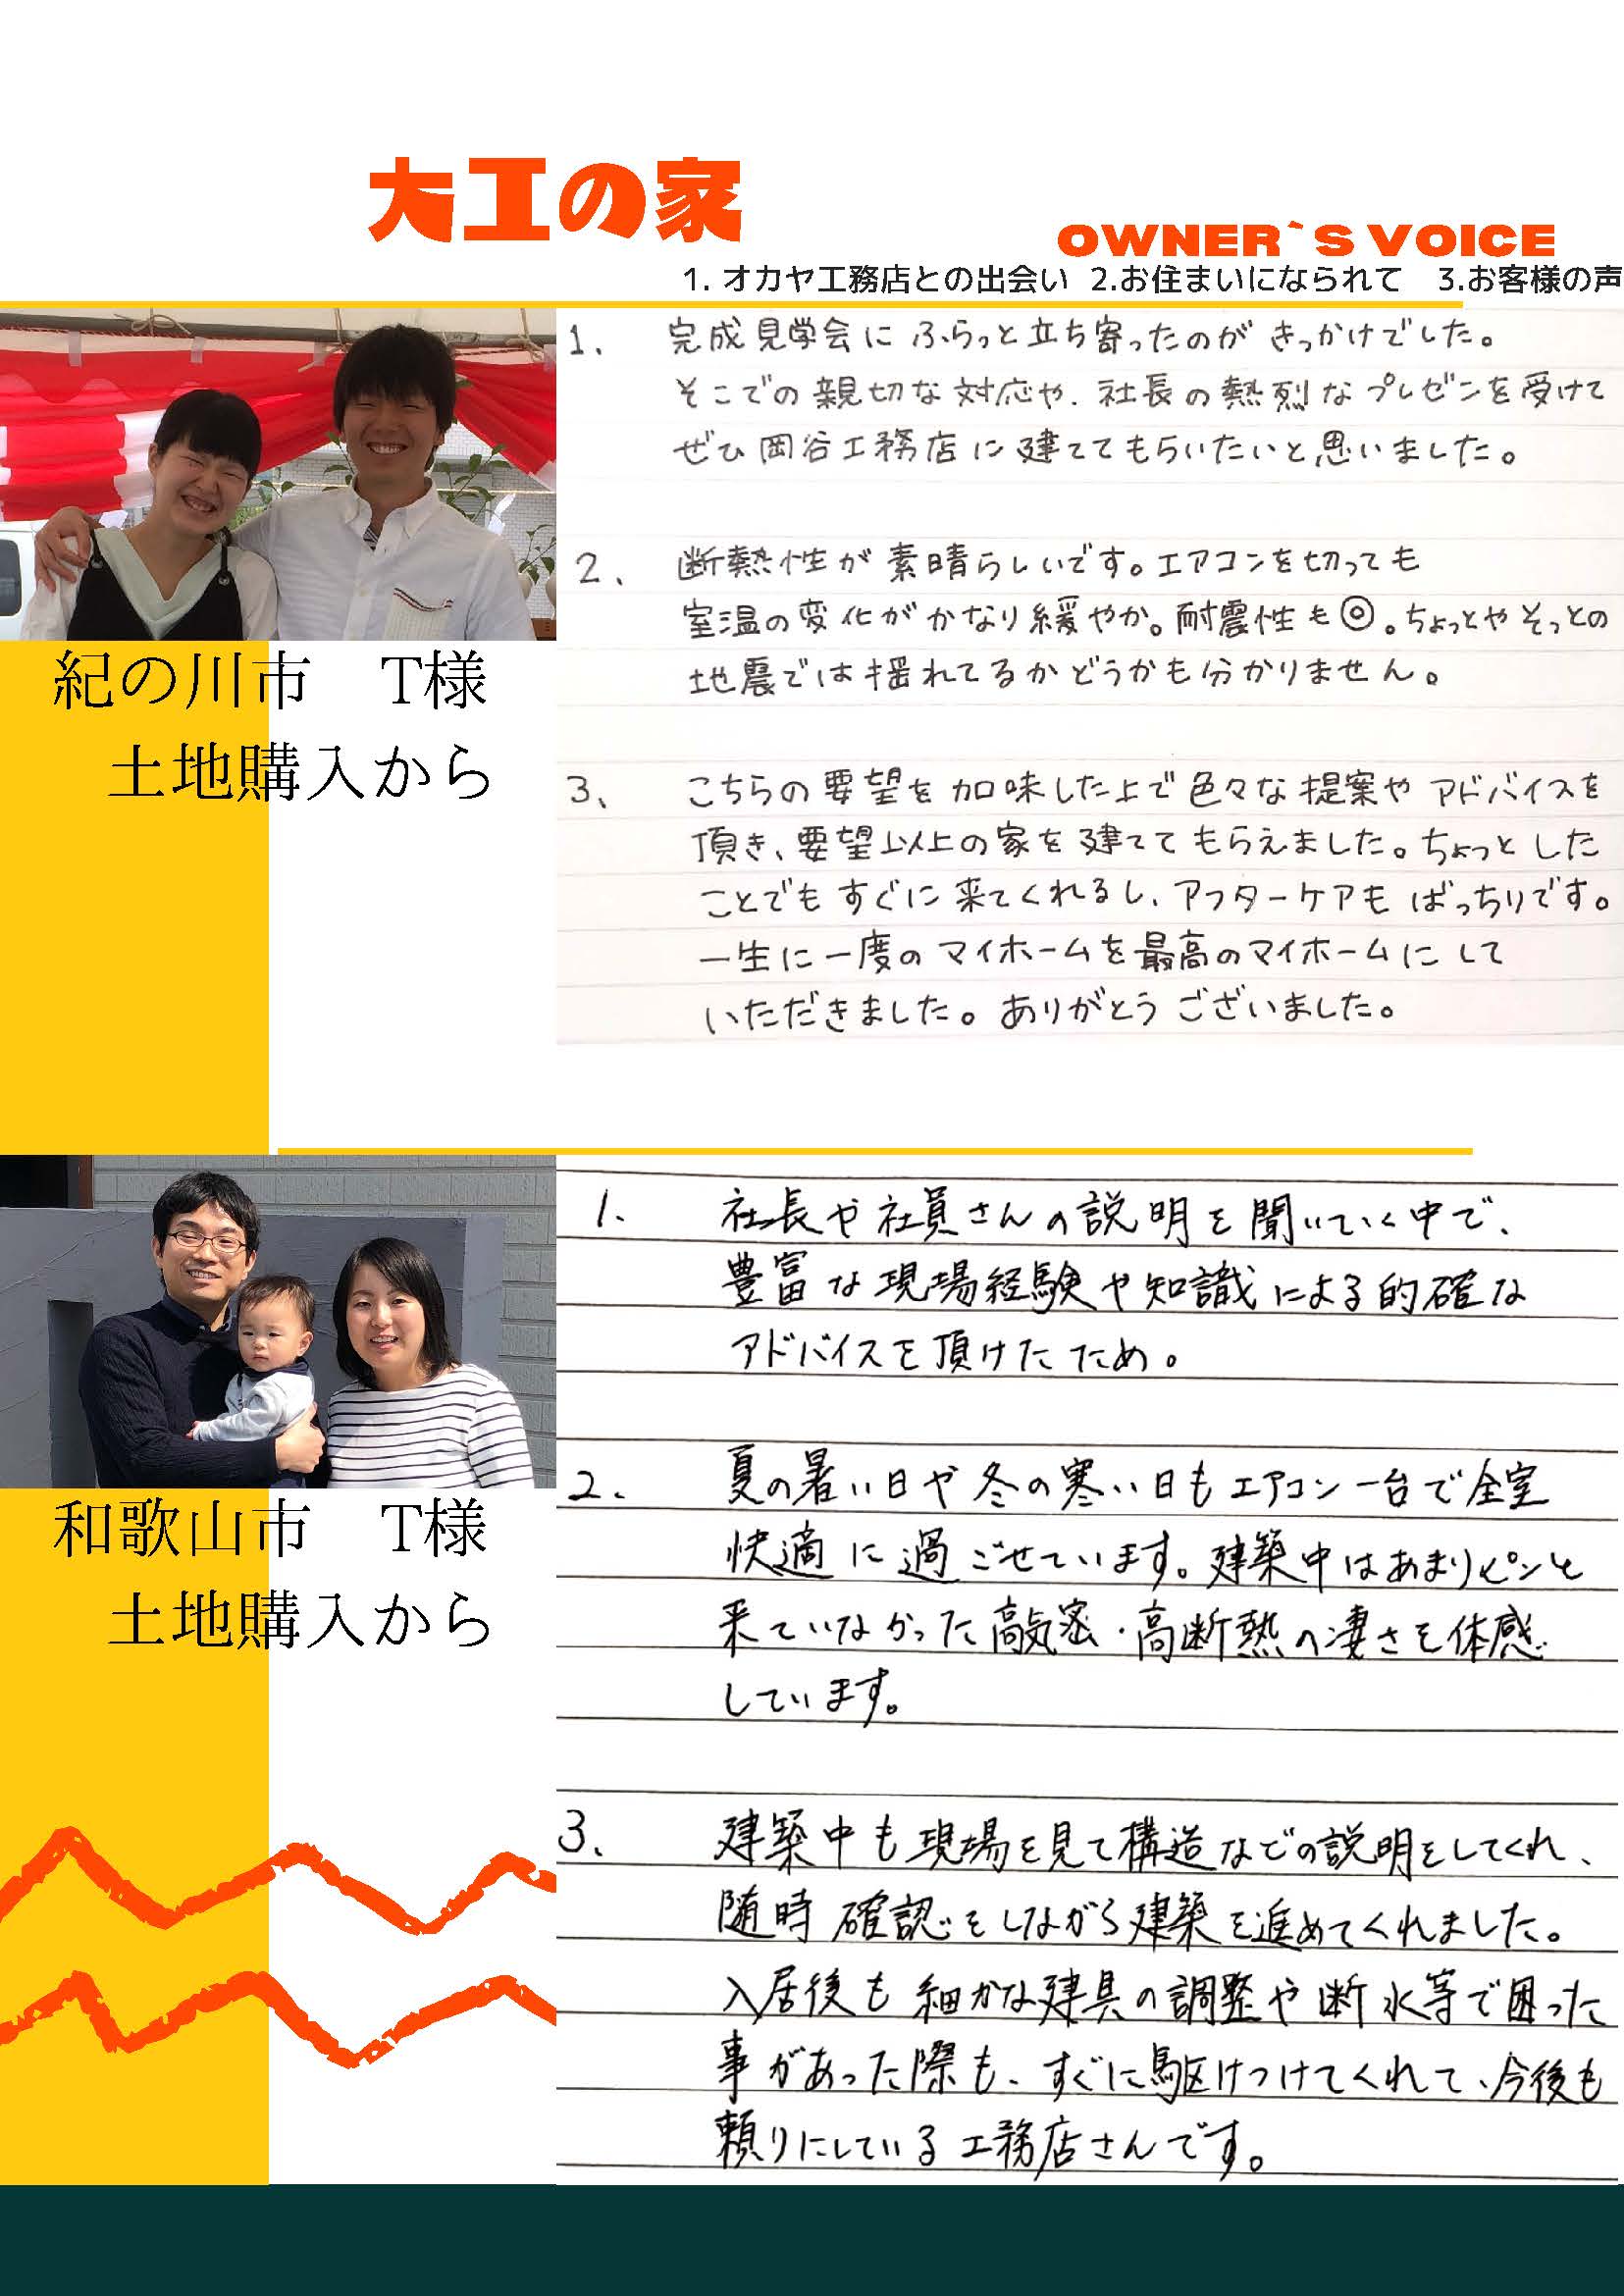 大工の家
OWNER`S VOICE
1. オカヤ工務店との出会い 2.お住まいになられて 3.お客様の声
1. 完成見学会に ふらっと立ち寄ったのが きっかけでした。
そこでの 親切な対応や、社長の熱烈なプレゼンを受けて
ぜひ 岡谷工務店に建ててもらいたいと思いました。
2. 断熱性が素晴らしいです。エアコンを切っても
室温の変化がかなり緩やか。耐震性も◎。ちょっとやそっとの
地震では揺れてるかどうかも分かりません。
3、 こちらの要望を加味した上で色々な提案やアドバイスを
頂き、要望以上の家を建ててもらえました。ちょっとした
ことでもすぐに来てくれるし、アフターケアもばっちりです。
一生に一度のマイホームを最高のマイホームにして
いただきました。ありがとうございました。
紀の川市 T様
土地購入から
1. 社長や社員さんの説明を聞いていく中で、
豊富な現場経験や知識による的確な
アドバイスを頂けたため。
2. 夏の暑い日や冬の寒い日もエアコン一台で全室
快適に過ごせています。建築中はあまりピンと
来ていなかった高気密・高断熱の凄さを体感
しています。
3. 建築中も現場を見て構造などの説明をしてくれ、
随時確認をしながら建築を進めてくれました。
入居後も細かな建具の調整や断水等で困った
事があった際も、すぐに駆けつけてくれて、今後も
頼りにしている工務店さんです。
和歌山市 T様
土地購入から